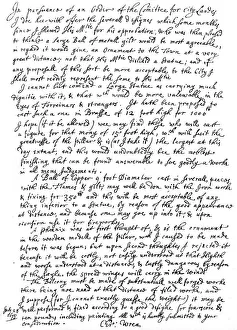 In pursuance of an Order of the Comittee for City Lands
I doe herewith offer the severall designes which some monthes
since I shewed His Maj:tie for his approbation, who was then pleased
to thinke a large Ball of metall gilt would be most agreeable,
in regard it would give an Ornament to the Town at a very
great distance; not that His Ma:tie disliked a Statue; and if
any proposall of this sort be more acceptable to the City I
shall most readily represent the same to His Ma:tie
I cannot but comend a Large Statue as carrying much
dignitie with it, & that which would be more vallewable in the
Eyes of Forreiners & strangers. It hath been proposed to
cast such a one in Brasse of 12 foot high for 1000
I hope (if it be allowed) wee may find those who will cast
a figure for that mony of 15 foot high, wch will suit the
greatnesse of the pillar & is (as I take it) the largest at this
day extant; and this would undoubtedly bee the noblest
finishing that can be found answerable to soe goodly a worke
in all mens judgements.
A Ball of Copper, 9 foot Diameter cast in severall peeces
with the Flames & gilt, may well be don with the Iron worke
& fixing for 350 and this will be most acceptable of any
thing inferior to a Statue, by reason of the good appearance
at distance, and because one may goe up into it; & upon
occasion use it for fireworkes.
A phœnix was at first thought of, & is the ornament in
the wooden modell of the pillar, wch I caused to be made
before it was begun; but upon second thoughtes I rejected it
because it will be costly, not easily understood at that Highth
and worse understood at a distance & lastly dangerous by reason
of the sayle, the spread winges will carry in the winde.
The Belcony must be made of substantiall well forged worke
there being noe need at that distance of filed worke, and
I suppose (for I cannot exactly guesse the weight) it may be
well performed & fixed according to a good designe for fourscore &
ten poundes including painting. All wch is humbly submitted to your
consideration.
Chr: Wren.